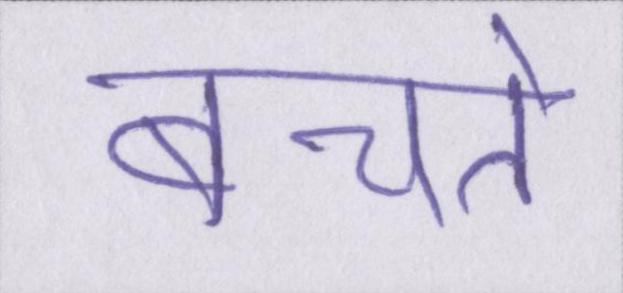 बचते